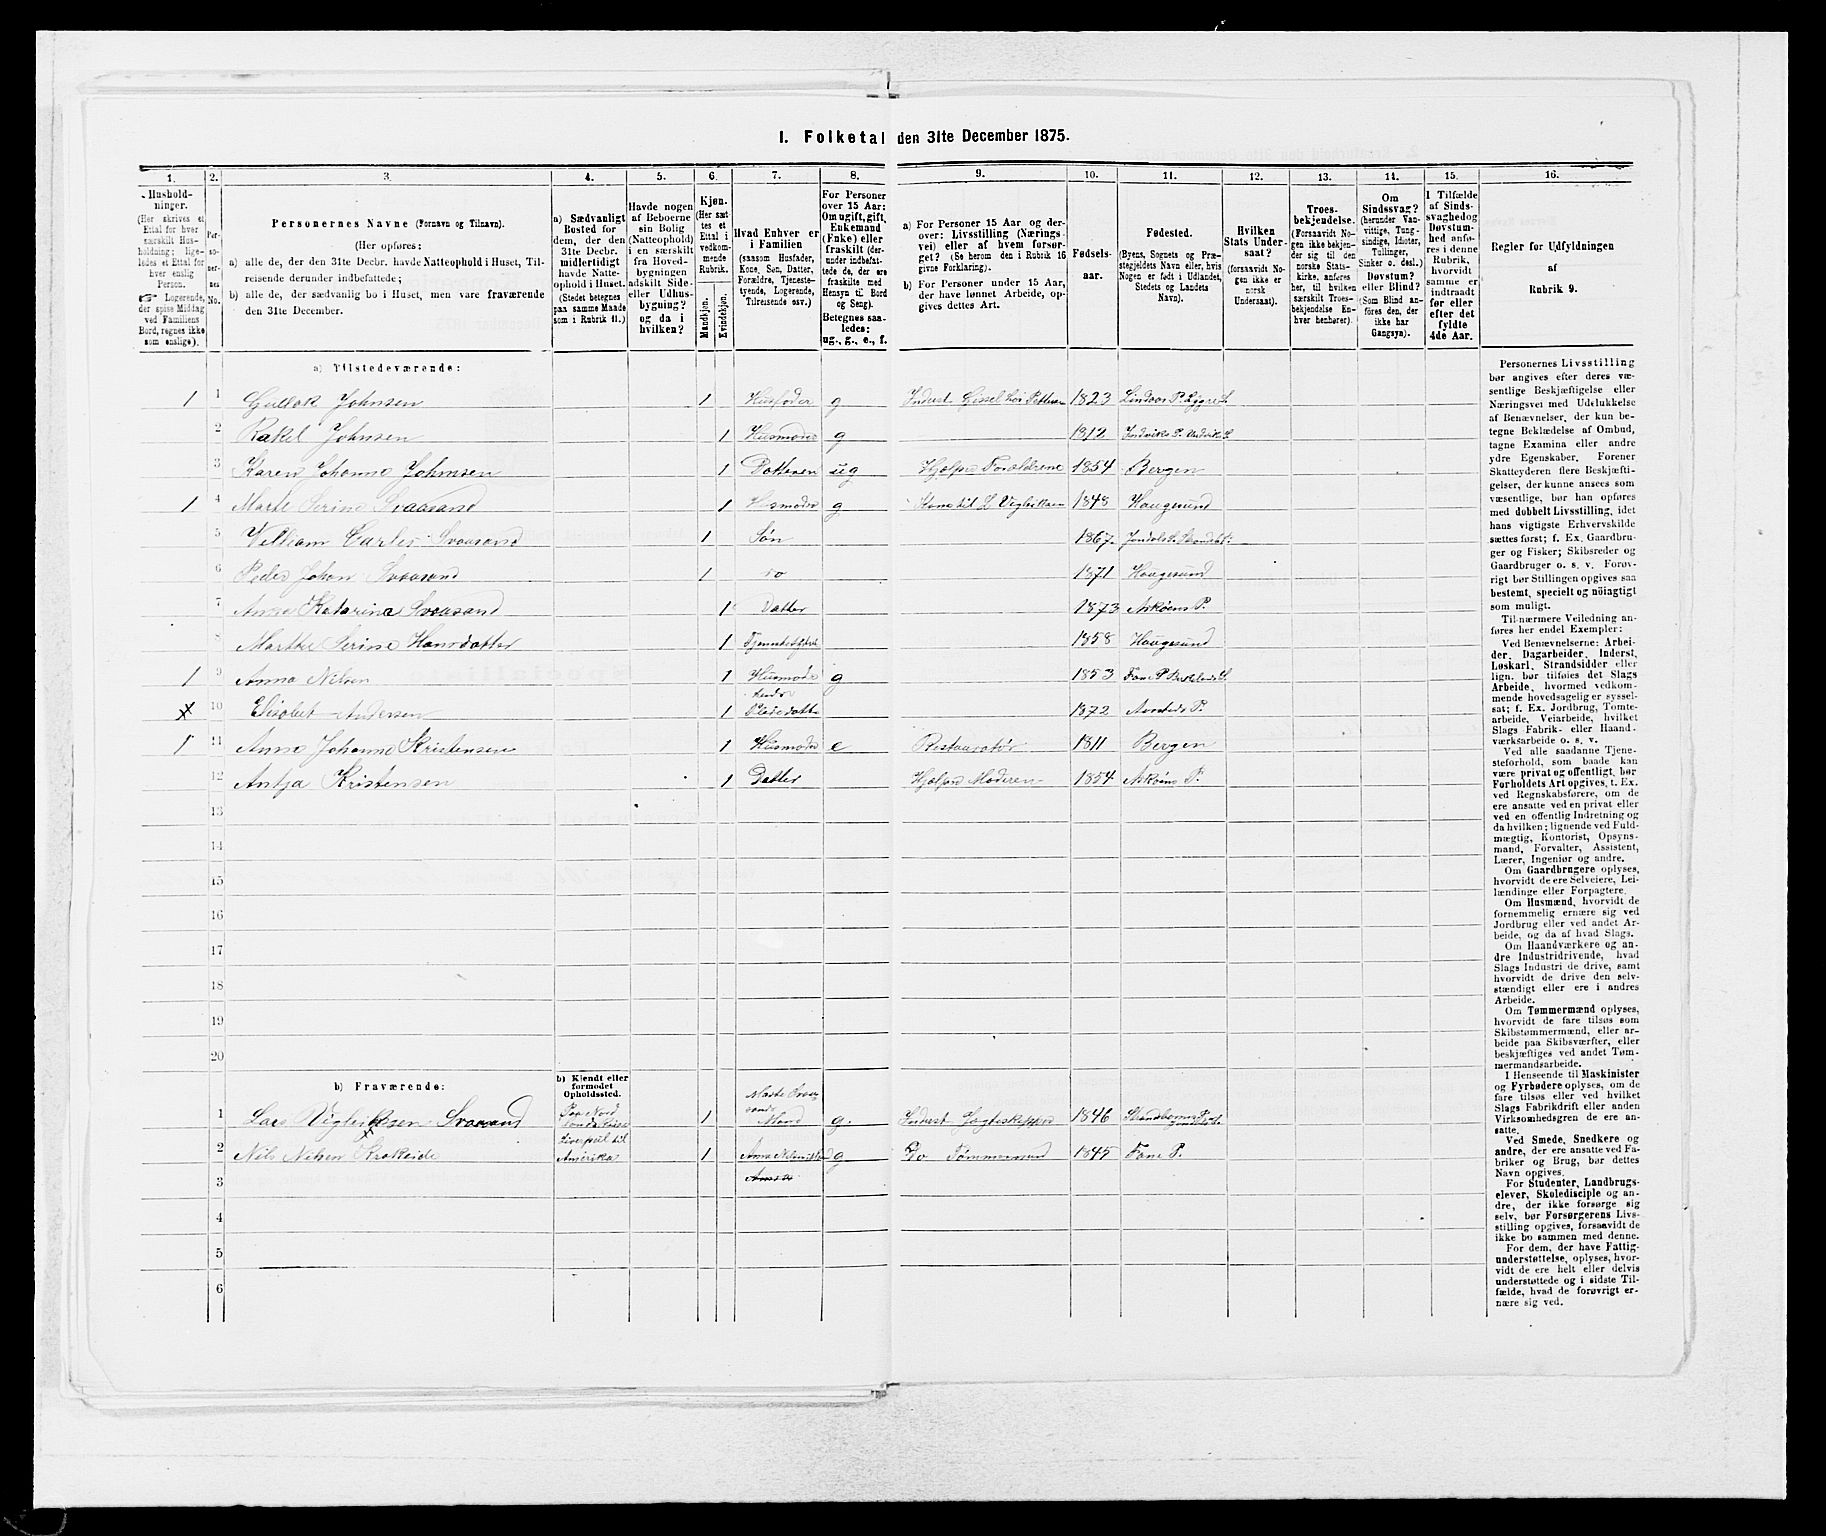 I. Folketal den 31te December 1875.
1.
2.
3.
4.
5.
6.
7.
8.
9.
10.
11.
12.
13.
14.
15.
16.
Hushold-
ninger.
(Her skrives et
Ettal for hver
særskilt Hus-
holdning; lige-
ledes et Ettal for
hver enslig
Person.
Logerende,
der spise Middag
ved Familiens
Bord, regnes ikke
som enslige).
Per-
so-
ner-
nes
No.
Personernes Navne (Fornavn og Tilnavn).
(Her opføres:
a) alle de, der den 31te Decbr. havde Natteophold i Huset, Til-
reisende derunder indbefattede;
b) alle de, der sædvanlig bo i Huset, men vare fraværende
den 31te December.
a) Sædvanligt
Bosted for
dem, der den
31te Decbr.
midlertidigt
havde Natte-
ophold i Huset.
(Stedet betegnes
paa samme Maade
som i Rubrik 11.)
Havde nogen
af Beboerne
sin Bolig
(Natteophold)
i en særskilt
fra Hoved-
bygningen
adskilt Side-
eller Udhus-
bygning?
og da i
hvilken?
Kjøn.
(Her sæt-
tes et
Ettal i
vedkom-
mende
Rubrik.
Mandkjøn.
Kvindekjøn.
Hvad Enhver er
i Familien
(saasom Husfader,
Kone, Søn, Datter,
Forældre, Tjeneste-
tyende, Logerende,
Tilreisende osv.)
For Personer
over 15 Aar:
Om ugift, gift,
Enkemand
(Enke) eller
fraskilt (der-
under indbefat-
tede de, der ere
fraskilte med
Hensyn til Bord
og Seng).
Betegnes saa-
ledes:
ug., g., e., f.
a) For Personer 15 Aar og der-
over: Livsstilling (Nærings-
vei) eller af hvem forsør-
get? (Se herom den i Rubrik 16
givne Forklaring).
b) For Personer under 15 Aar,
der have lønnet Arbeide, op-
gives dettes Art.
Fødsels-
aar.
Fødested.
(Byens, Sognets og Præ-
stegjeldets Navn eller, hvis
Nogen er født i Udlandet,
Stedets og Landets
Navn).
Hvilken
Stats Under-
saat?
(forsaavidt No-
gen ikke er
norsk
Undersaat).
Troes-
bekjendelse.
(Forsaavidt No-
gen ikke bekjen-
der sig til den
norske Stats-
kirke, anføres
her, til hvilken
særskilt Troes-
bekjendelse En-
hver henhører).
Om
Sindssvag?
(herunder Van-
vittige, Tung-
sindige, Idioter,
Tullinger,
Sinker o. desl.)
Døvstum?
eller Blind?
(Som Blind an-
føres den, der
ikke har
Gangsyn).
I Tilfælde
af Sinds-
svaghed og
Døvstum-
hed anfø-
res i denne
Rubrik,
hvorvidt
samme er
indtraadt
før eller
efter det
fyldte
4de Aar.
Regler for Udfyldningen
af
Rubrik 9.
a) Tilstedeværende:
1 1 Gullak Johnsen 1 Husfader g 1823
2 Rakel Johnsen 1 Husmoder g 1812
3 Karen Johanne Johnsen 1 Datteren ug Hjælper Forældrene 1854 Bergen
1 4 Marte Serine Svaasand 1 Husmoder g Kone til L Vigleiksen 1848 Haugesund
5 Villiam Carles Svaasand 1 Søn 1867
6 Peder Johan Svaasand 1 do 1871 Haugesund
7 Anna Katarina Svaasand 1 Datter 1873 Askøens P.
8 Marthe Serine Hansdatter 1 1858 Haugesund
1 9 Anna Nilsen 1 Husmoder g 1853 Fane P.
10 Elisabet Andersen 1 Pleiedatter 1872 P.
1 11 Anne Johanne Kristensen 1 Husmoder e Restauratør 1811 Bergen
12 Antja Kristensen 1 Datter Hjælper Moderen 1854 Askøens P.
13
14
15
16
17
18
19
20
b) Fraværende:
b) Kjendt eller
formodet
Opholdssted.
1 Lars Vigleiksen Svaasand 1 Marte Svaasands Mand g. Inderst Jægteskipper 1846
2 Nils Nilsen Krokeide Liverpul til Amerika 1 g Do Tømmermand 1845 Fane P.
3
4
5
6
Personernes Livsstilling
bør angives efter deres væ-
sentlige Beskjæftigelse eller
Næringsvei med Udelukkelse
af Benævnelser, der kun be-
tegne Beklædelse af Ombud,
tagne Examina eller andre
ydre Egenskaber. Forener
Skatteyderen flere Beskjæfti-
gelser, der kunne ansees som
væsentlige, bør han opføres
med dobbelt Livsstilling, idet
hans vigtigste Erhvervskilde
sættes først; f. Ex. Gaardbru-
ger og Fisker; Skibsreder og
Gaardbruger o. s. v. Forøv-
rigt bør Stillingen opgives saa
bestemt, specielt og nöiagtigt
som muligt.
Til nærmere Veiledning an-
føres her endel Exempler:
Ved Benævnelserne: Arbei-
der, Dagarbeider, Inderst,
Løskarl, Strandsidder eller
lign. bør tilføies det Slags
Arbeide, hvormed vedkom-
mende hovedsagelig er syssel-
sat; f. Ex. Jordbrug, Tomte-
arbeide, Veiarbeide, hvilket
Slags Fabrik- eller Haand-
værksarbeide o. s. v.
Ved alle saadanne Tjene-
steforhold, som baade kan
være privat og offentligt, bør
Forholdets Art opgives, t. Ex.
ved Regnskabsførere, om de
ere ansatte ved en privat eller
ved en offentlig Indretning og
da hvilken; lignende ved Fuld-
mægtig, Kontorist, Opsyns-
mand, Forvalter, Assistent,
Lærer, Ingeniør og andre.
Om Gaardbrugere oplyses,
hvorvidt de ere Selveiere, Lei-
lændinge eller Forpagtere.
Om Husmænd, hvorvidt de
fornemmelig ernære sig ved
Jordbrug eller ved andet Ar-
beide, og da af hvad Slags.
Om Haandværkere og an-
dre Industridrivende, hvad
Slags Industri de drive, samt
hvorvidt de drive den selv-
stændigt eller ere i andres
Arbeide.
Om Tømmermænd oplyses,
hvorvidt de fare tilsøs som
Skibstømmermænd, eller ar-
beide paa Skibsværfter, eller
beskjæftiges ved andet Tøm-
mermandsarbeide.
I Henseende til Maskinister
og Fyrbødere oplyses, om de
fare tilsøs eller ved hvilket
Slags Fabrikdrift eller anden
Virksomhedsgren de ere an-
satte.
Ved Smede, Snedkere og
andre, der ere ansatte ved Fa-
briker og Brug, bør dettes
Navn opgives.
For Studenter, Landbrugs-
elever, Skoledisciple og an-
dre, der ikke forsørge sig
selv, bør Forsørgerens Livs-
stilling opgives, forsaavidt de
ikke bo sammen med denne.
For dem, der have Fattig-
understøttelse, oplyses, hvor-
vidt de ere helt eller delvis
understøttede og i sidste Til-
fælde, hvad de forøvrigt er-
nære sig ved.